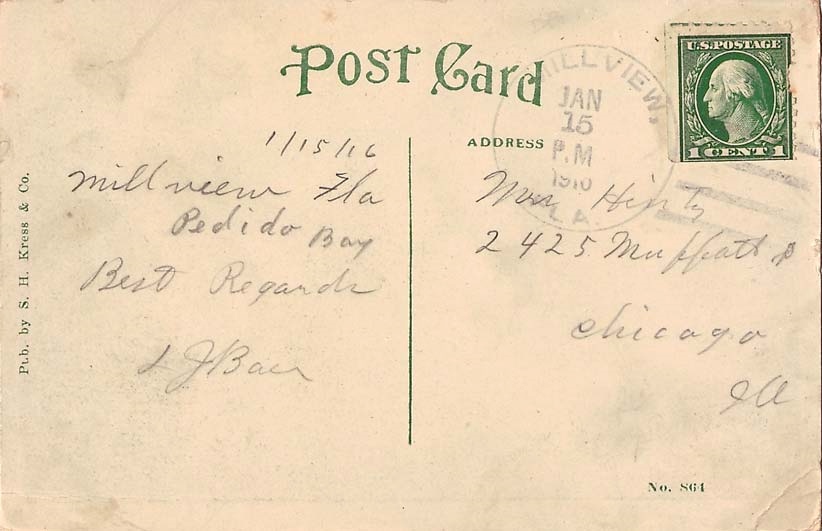 Post Card
MILLVIEW,
JAN
15
P.M
1916
LA
U.S. POSTAGE
1 CENT 1
ADDRESS
1/15/16
Millview Fla
Pedido Bay
Best Regards
L J Baer
2425 Muffatt
Chicago
Ill
Pub. by S. H. Kress & Co.
No. 864